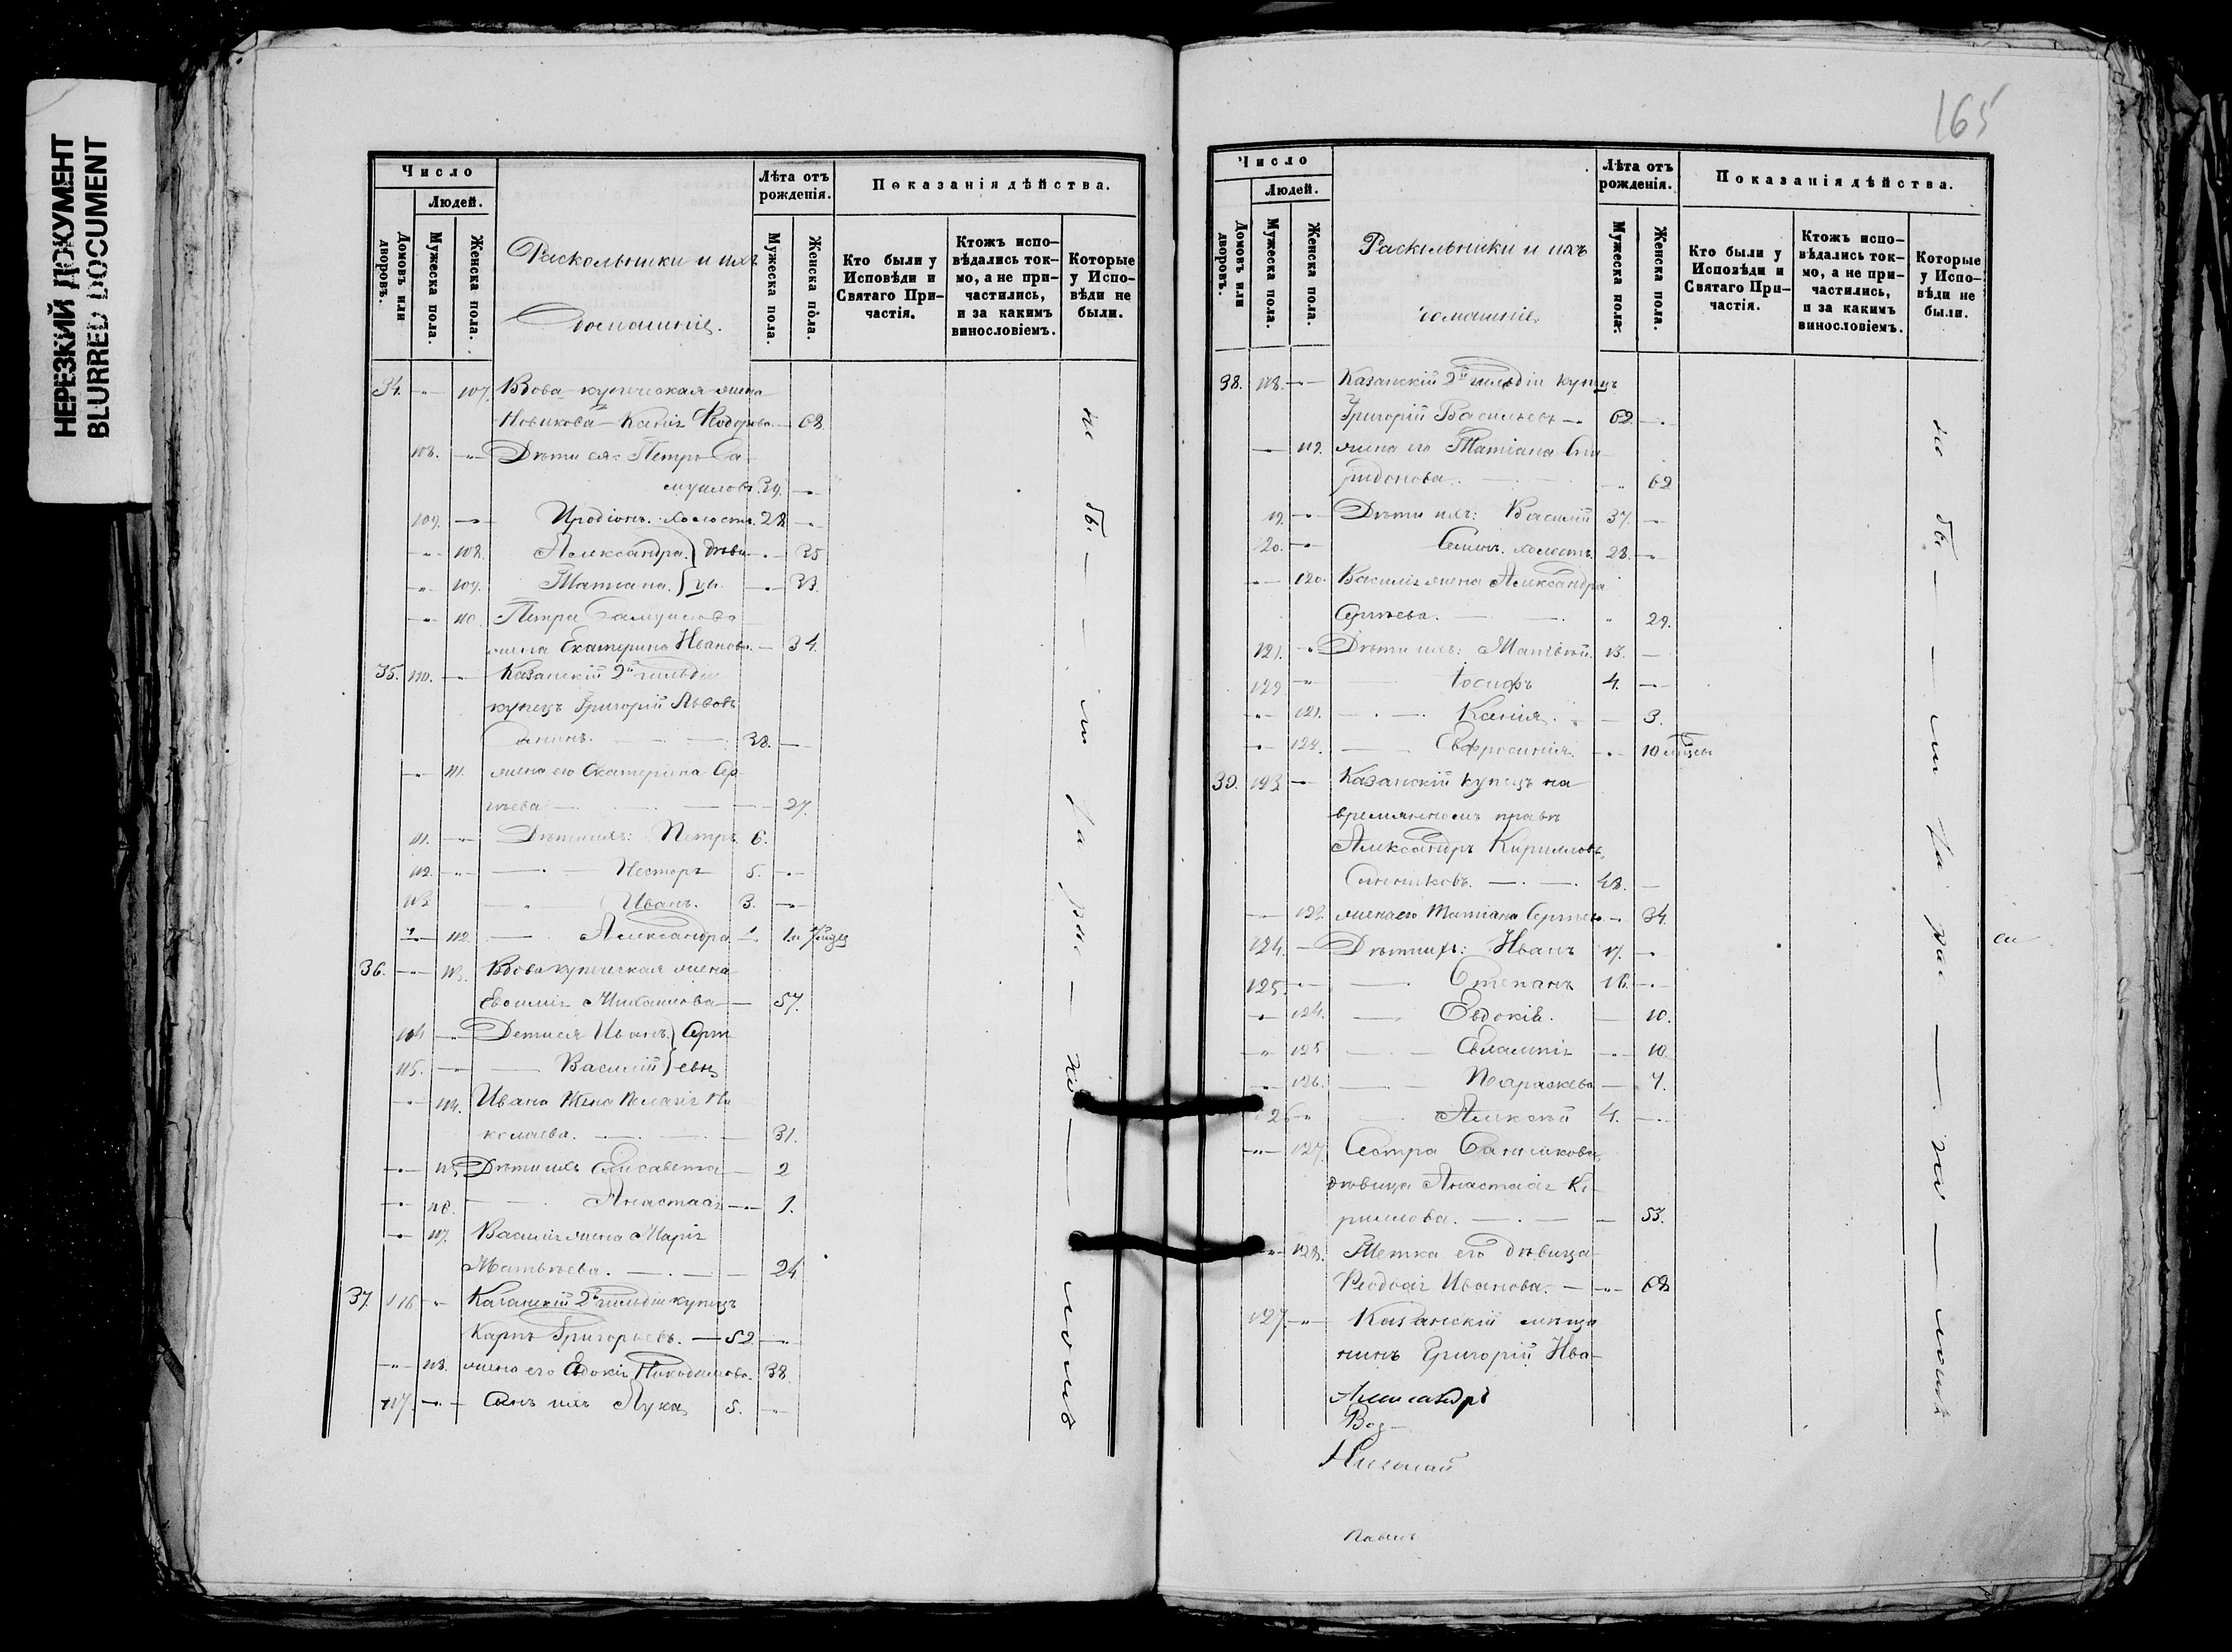 НЕРЕЗКИЙ ДОКУМЕНТ
BLURRED DOCUMENT
Число
Людей.
Домовъ или дворовъ.
Мужеска пола.
Женска пола.
Раскольники и ихъ
домашніе.
Лѣта отъ рожденія.
Мужеска пола.
Женска пола.
Показанія дѣйства.
Кто были у Исповѣди и Святаго Причастія.
Ктожъ исповѣдались токмо, а не причастились, и за какимъ винословіемъ.
Которые у Исповѣди не были.
34. 107. Вдова купеческая жена
Новикова Ксенія Ѳедорова. 68.
108. Дѣти ея: Петръ Са-
муиловъ. 39.
109. Иродіонъ. холостъ. 28
108. Александра. } дѣви- 35
109. Татіана. } цы. 33.
110. Петра Самуилова
жена Екатерина Иванова. 34.
35. 110. Казанскій 2й гильдіи
купецъ Григорій Львовъ
38.
111. жена его Екатерина Сер-
гѣева 27.
111. Дѣти ихъ: Петръ 6.
112. Несторъ 5.
113. Иванъ. 3.
112. Александра
36. 113. Вдова купеческая жена
Евѳимія 57.
114 Дети ея Иванъ } Серг-
115. Василій } евы
114. Ивана Жена Пелагія Ни-
колаева. 31.
115 Дѣти ихъ Елисавета 2
116. Анастасія 1.
117. Василія жена Марія
Матвѣева. 24
37. 116 Казанскій 2й гильдіи купецъ
Карпъ Григорьевъ. 52
118. жена его Евдокія Никодимова. 38.
117. сынъ ихъ Лука 5.
не бы - ли за рас - ко - ломъ
165
Число
Людей.
Домовъ или дворовъ.
Мужеска пола.
Женска пола.
Раскольники и ихъ
домашніе
Лѣта отъ рожденія.
Мужеска пола.
Женска пола.
Показанія дѣйства.
Кто были у Исповѣди и Святаго Причастія.
Ктожъ исповѣдались токмо, а не причастились, и за какимъ винословіемъ.
Которые у Исповѣди не были.
38. 118. Казанскій 2й гильдіи купецъ
Григорій Васильевъ 62
119. жена его Татіана Спи-
ридонова. 62
19. Дѣти ихъ: Василій 37.
120. Семенъ. холостъ. 28.
120. Василія жена Александра
Сергѣева. 29.
121. Дѣти ихъ: Матвѣй. 13.
122 Іосифъ 4.
121. Ксенія. 3.
122. Евфросинія. 10 мѣсяц.
39. 123. Казанскій купецъ на
временномъ правѣ
Александръ Кирилловъ
48.
123. жена его Татіана Сергѣева. 34.
124. Дѣти ихъ: Иванъ 17.
125. Степанъ 16.
124. Евдокія. 10.
125 Евлампія 10.
126. Параскева 7.
126 Алексѣй 4.
127 Сестра
дѣвица Анастасія Ки-
риллова. 53.
128. Тетка его дѣвица
Ѳеодосія Иванова. 68
127. Казанскій мѣща-
нинъ Григорій Ива-
не бы - ли за рас - ко - ломъ
Александръ
Воз-
Николай